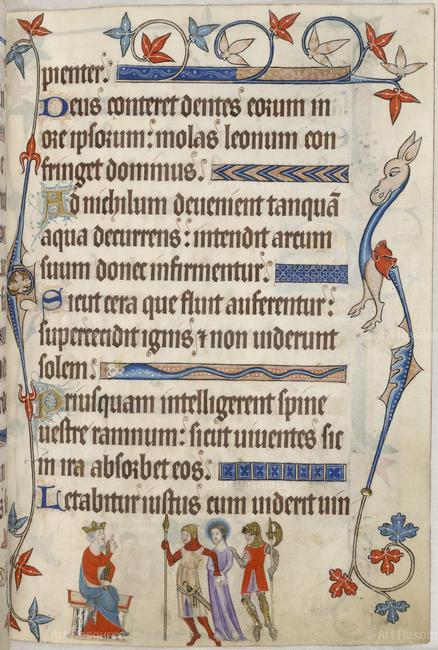 pienter.
Deus conteret dentes eorum in
ore ipsorum: molas leonum con
fringet dominus.
Ad nichilum devenient tanquã
aqua decurrens: intendit arcum
suum donec infirmentur.
Sicut cera que fluit auferentur:
supercecidit ignis ⁊ non uiderunt
solem.
Priusquam intelligerent spine
uestre ramnum: sicut uiuentes sic
in ira absorbet eos.
Letabitur iustus cum uiderit uin
© Art Resource
© Art Resource